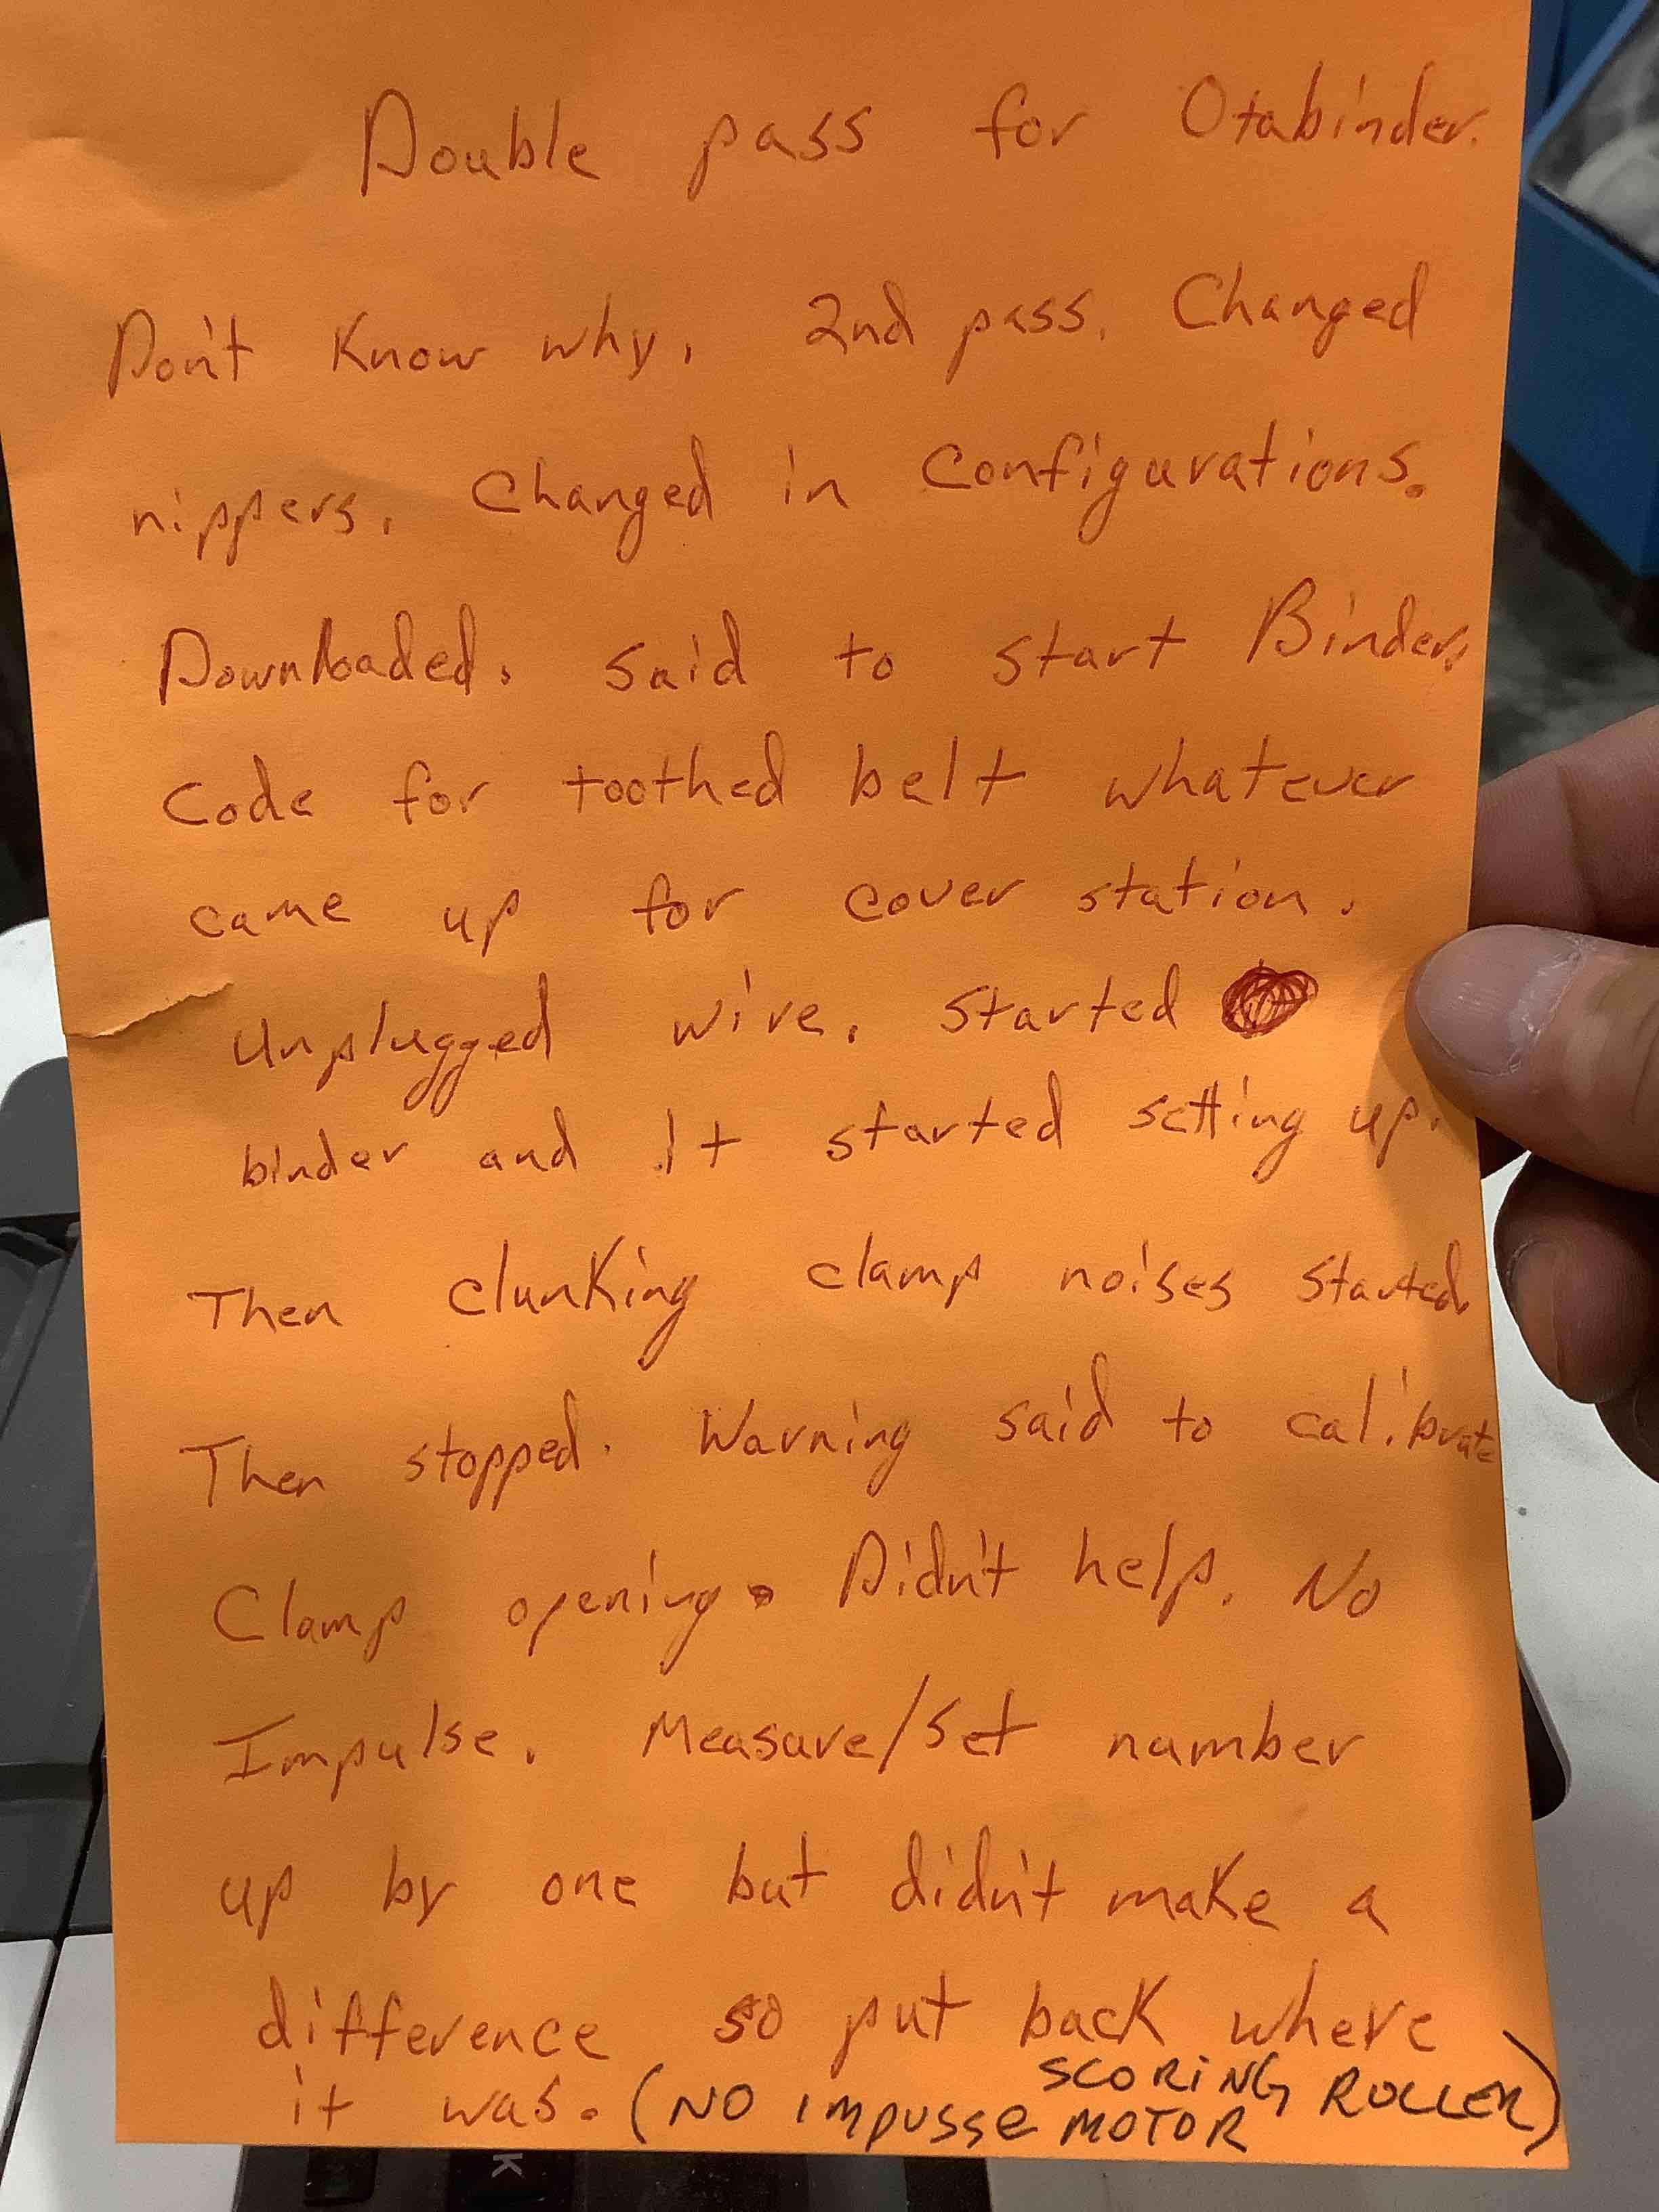 Double pass for Otabinder.
Don't Know why. 2nd pass. Changed
nippers. Changed in Configurations.
Downloaded. Said to start Binder.
Code for toothed belt whatever
came up for cover station.
Unplugged wire. Started
binder and it started setting up.
Then clunking clamp noises started.
Then stopped. Warning said to calibrate
Clamp opening. Didn't help. No
Impulse. Measure/Set number
up by one but didn't make a
difference so put back where
it was. (NO IMPUSSE MOTOR SCORING ROLLER)
K